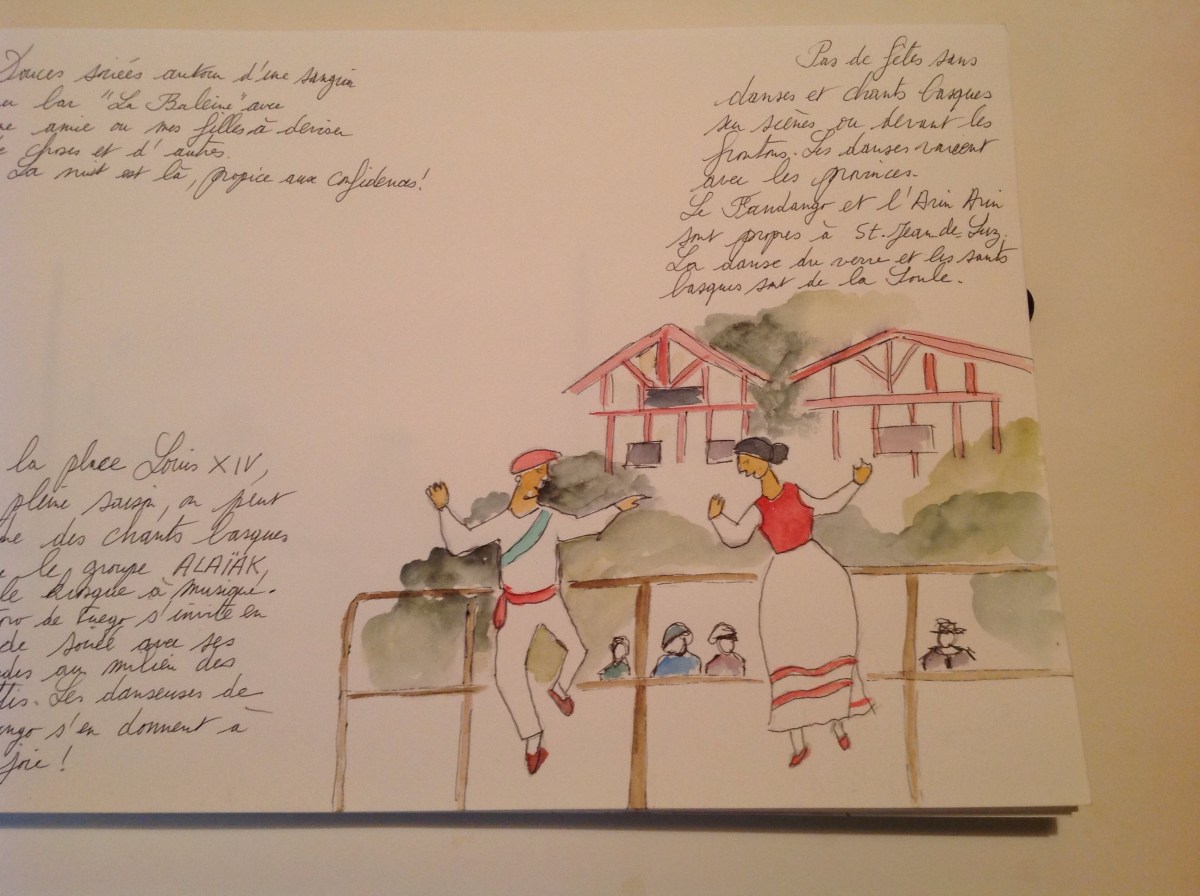 Douces soirées autour d'une sangria
au bar "La Baleine" avec
une amie ou mes filles à deviser
de choses et d'autres.
La nuit est là, propice aux confidences!
Pas de fêtes sans
danses et chants basques
sur scènes ou devant les
frontons. Les danses varient
avec les provinces.
Le Fandango et l'Arin Arin
sont propres à St-Jean-de-Luz.
La danse du verre et les sauts
basques sont de la Soule.
la place Louis XIV,
pleine saison, on peut
des chants basques
le groupe ALAÏAK,
le kiosque à musique.
toro de fuego s'invite en
de soirée avec ses
au milieu des
Les danseuses de
s'en donnent à
joie!